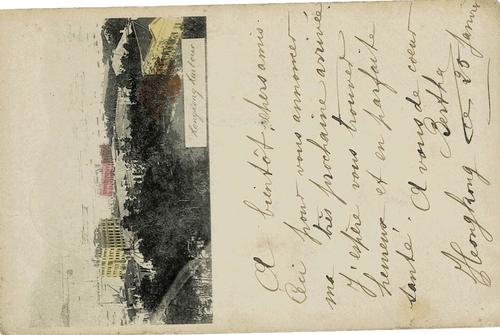 Hongkong Harbour
A bientôt, chers amis.
Ceci pour vous annoncer
ma très prochaine arrivée.
J'espère vous trouver
heureux et en parfaite
santé. A vous de coeur
Bertha
Hongkong le 25 Janvier